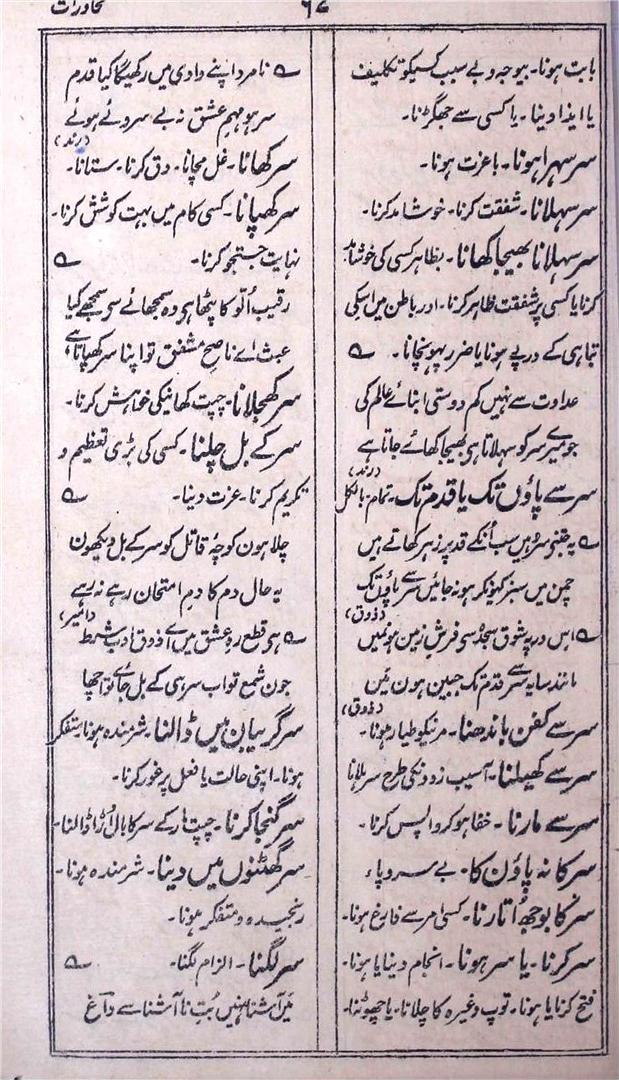 محاورات
۹۷
بابت ہونا۔ بیوجہ و بے سبب کسیکو تکلیف
یا ایذا دینا۔ یا کسی سے جھگڑنا۔
سر سہرا ہونا۔ باعزت ہونا۔
سر سہلانا۔ شفقت کرنا۔ خوشامد کرنا۔
سر سہلانا بھیجا کھانا۔ بظاہر کسی کی خوشامد
کرنا یا کسی پر شفقت ظاہر کرنا۔ اور باطن میں اسکی
تباہی کے درپے ہونا یا ضرر پہونچانا۔ ؎
عداوت سے نہیں کم دوستی ابنائے عالم کی
جو میرے سر کو سہلاتا ہی بھیجا کھائے جاتا ہے
(رند)
سر سے پاؤں تک یا قدم تک۔ تمام۔ بالکل
؎ یہ جتنے سرو ہیں سب اُنکے قد پر زہر کھاتے ہیں
چمن میں سبز کیونکر ہو نہ جائیں سر سے پاؤں تک
(ذوق)
؎ اس در پہ شوق سجدہ سی فرش زمین ہوئیں
مانند سایہ سر سے قدم تک جبین ہون میں
(ذوق)
سر سے کفن باندھنا۔ مرنیکو طیار ہونا۔
سر سے کھیلنا۔ آسیب زدونکی طرح سر ہلانا
سر سے مارنا۔ خفا ہو کر واپس کرنا۔
سر کا نہ پاؤں کا۔ بے سروپا ء
سر کا بوجھ اُتارنا۔ کسی امر سے فارغ ہونا۔
سر کرنا۔ یا سر ہونا۔ انجام دینا یا ہونا۔
فتح کرنا یا ہونا۔ توپ وغیرہ کا چلانا۔ یا چھوٹنا۔
؎ نامرد اپنے وادی میں رکھیگا کیا قدم
سر ہو مہم عشق نہ بے سر دئے ہوئے
(رند)
سر کھانا۔ غل مچانا۔ دق کرنا۔ ستانا۔
سر کھپانا۔ کسی کام میں بہت کوشش کرنا۔
نہایت جستجو کرنا۔ ؎
رقیب اُلّو کا پٹھا ہی وہ سمجھائے سے سمجھے کیا
عبث اے ناصح مشفق تو اپنا سر کھپاتا ہے
سر کھجلانا۔ چپت کھانیکی خواہش کرنا۔
سر کے بل چلنا۔ کسی کی بڑی تعظیم و
تکریم کرنا۔ عزت دینا۔ ؎
چلا ہون کوچۂ قاتل کو سر کے بل دیکھون
یہ حال دم کا دم امتحان رہے نہ رہے
(امیر)
؎ ہی قطع رہ عشق میں اے ذوق ادب شرط
جون شمع تو اب سر ہی کے بل جائے تو اچھا
سر گریبان میں ڈالنا۔ شرمندہ ہونا۔ متفکر
ہونا۔ اپنی حالت یا فعل پر غور کرنا۔
سر گنجا کرنا۔ چپت مار کے سر کا بال اُڑا ڈالنا۔
سر گھٹنوں میں دینا۔ شرمندہ ہونا۔
رنجیدہ و متفکر ہونا۔
سر لگنا۔ الزام لگنا۔ ؎
میں آشنا نہیں بُت نا آشنا سے داغ